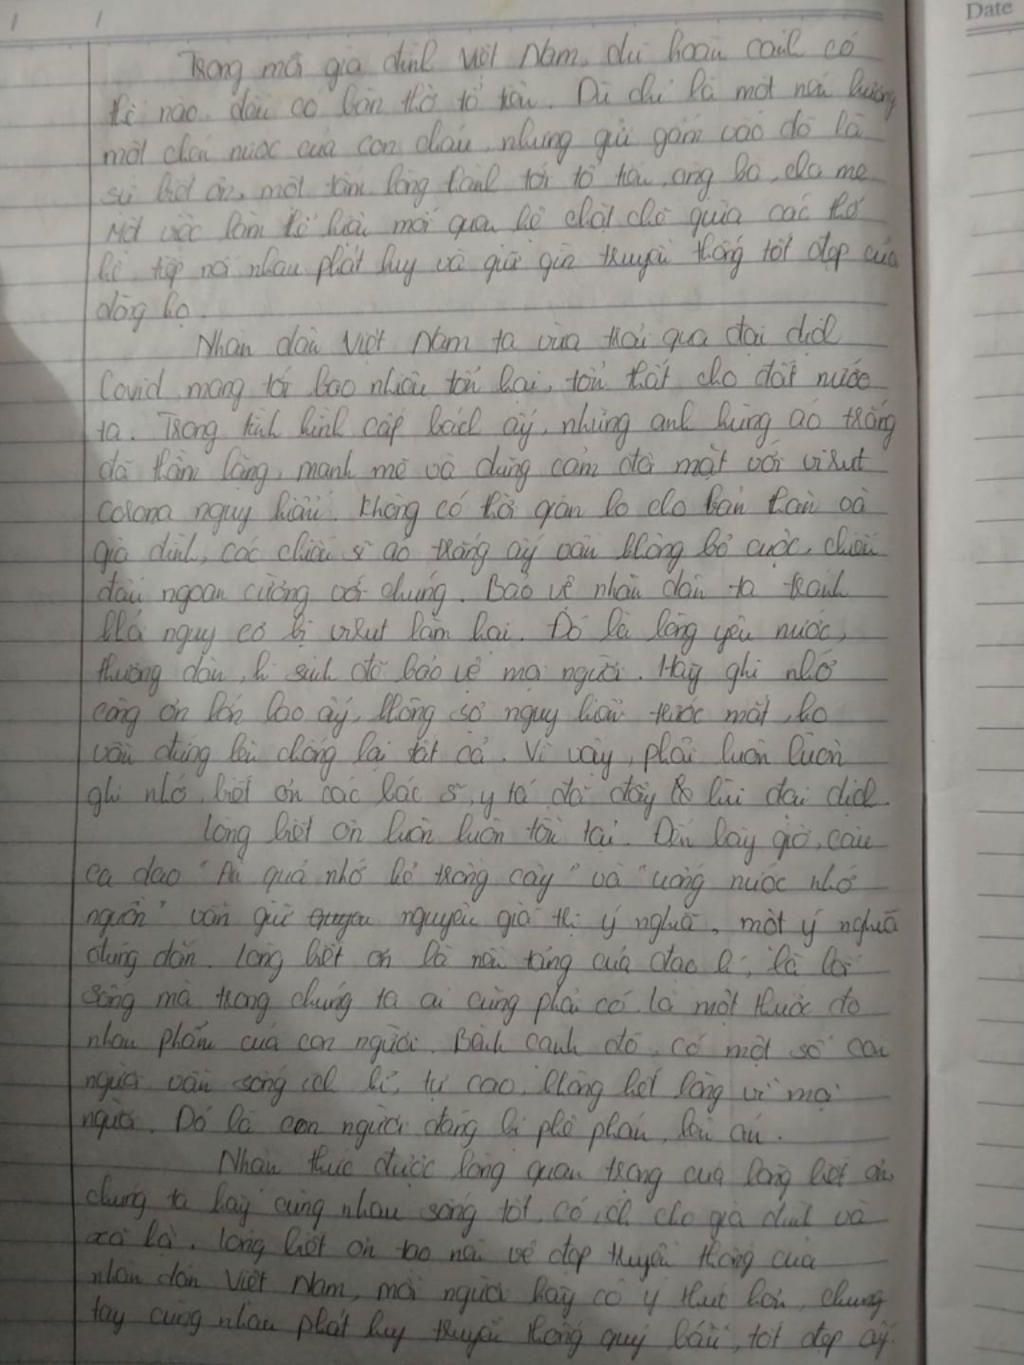 Date
Trong mỗi gia đình Việt Nam, dù hoàn cảnh có
thế nào, đều có bàn thờ tổ tiên. Dù chỉ là một nén hương,
một chén nước của con cháu, nhưng gửi gắm vào đó là
sự biết ơn, một tấm lòng thành tới tổ tiên, ông bà, cha mẹ.
Một việc làm thể hiện mối quan hệ chặt chẽ giữa các thế
hệ, tiếp nối nhau phát huy và giữ gìn truyền thống tốt đẹp của
dòng họ.
Nhân dân Việt Nam ta vừa trải qua đại dịch
Covid mang tới bao nhiêu tổn hại, tổn thất cho đất nước
ta. Trong tình hình cấp bách ấy, những anh hùng áo trắng
đã thầm lặng, mạnh mẽ và dũng cảm đối mặt với virut
corona nguy hiểm. Không có thời gian lo cho bản thân và
gia đình, các chiến sĩ áo trắng ấy vẫn không bỏ cuộc, chiến
đấu ngoan cường với chúng. Bảo vệ nhân dân ta tránh
khỏi nguy cơ bị virut làm hại. Đó là lòng yêu nước,
thương dân, hi sinh để bảo vệ mọi người. Hãy ghi nhớ
công ơn lớn lao ấy, không sợ nguy hiểm trước mắt, họ
vẫn đứng lên chống lại tất cả. Vì vậy, phải luôn luôn
ghi nhớ, biết ơn các bác sĩ, y tá đã đẩy lùi đại dịch.
Lòng biết ơn luôn luôn tồn tại. Đến bây giờ, câu
ca dao "Ăn quả nhớ kẻ trồng cây" và "uống nước nhớ
nguồn" vẫn giữ nguyên giá trị ý nghĩa, một ý nghĩa
đúng đắn. Lòng biết ơn là nền tảng của đạo lí, là lối
sống mà trong chúng ta ai cũng phải có, là một thước đo
nhân phẩm của con người. Bên cạnh đó, có một số con
người vẫn sống ích kỉ, tự cao, không hết lòng vì mọi
người. Đó là con người đáng bị phê phán, lên án.
Nhận thức được lòng quan trọng của lòng biết ơn,
chúng ta hãy cùng nhau sống tốt, có ích cho gia đình và
xã hội. Lòng biết ơn tạo nên vẻ đẹp truyền thống của
nhân dân Việt Nam, mỗi người hãy có ý thức hơn, chung
tay cùng nhau phát huy truyền thống quý báu, tốt đẹp ấy.